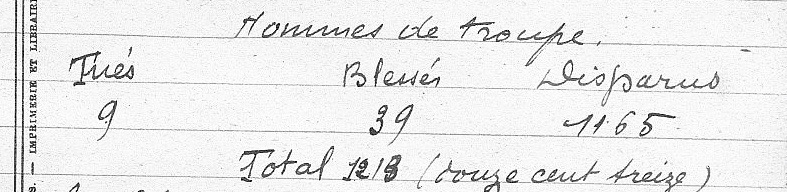 Hommes de troupe.
Tués Blessés Disparus
9 39 1165
Total 1213 (douze cent treize)
— IMPRIMERIE ET LIBRAIRI